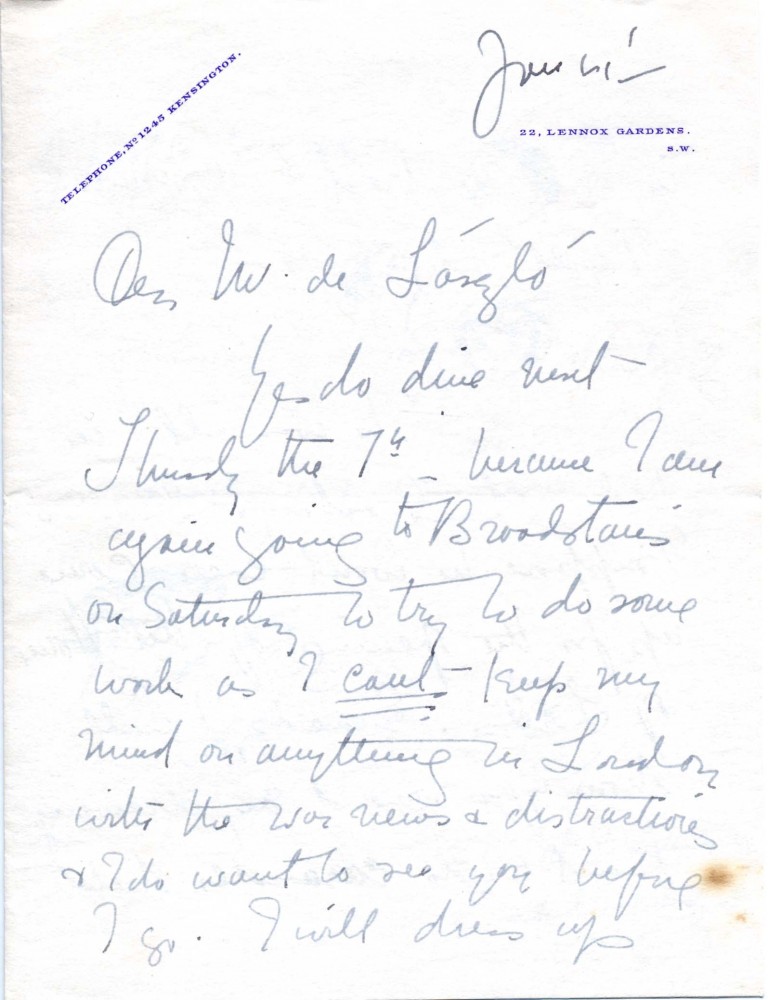 TELEPHONE, Nº 1245 KENSINGTON.
22, LENNOX GARDENS.
S.W.
Dear Mr. de László
Yes do dine next
Thursday the 7th _ because I am
again going to Broadstairs
on Saturday to try to do some
work as I cant keep my
mind on anything in London
with the war news & distractions
& I do want to see you before
I go. I will dress up